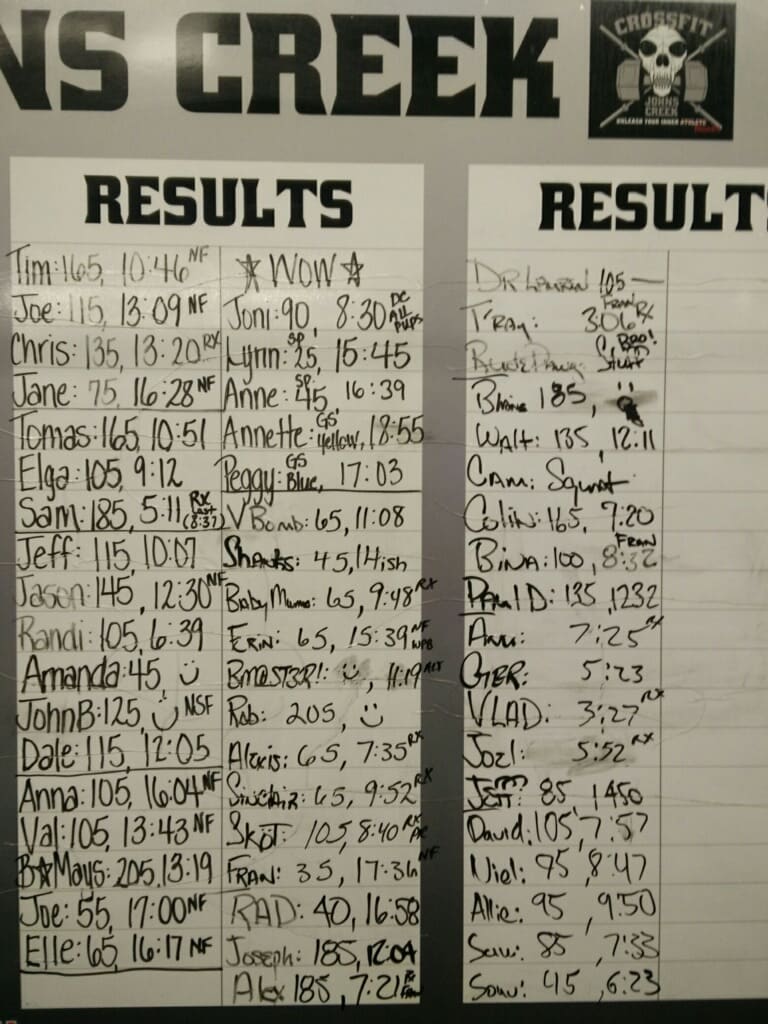 NS CREEK
CROSSFIT
JOHNS
CREEK
UNLEASH YOUR INNER ATHLETE
RESULTS
Tim: 165, 10:46 NF
Joe: 115, 13:09 NF
Chris: 135, 13:20 RX
Jane: 75, 16:28 NF
Tomas: 165, 10:51
Elga: 105, 9:12
Sam: 185, 5:11 RX (8:37)
Jeff: 115, 10:07
Jason: 145, 12:30 NF
Randi: 105, 6:39
Amanda: 45, ☺
JohnB: 125, ☺ NSF
Dale: 115, 12:05
Anna: 105, 16:04 NF
Val: 105, 13:43 NF
B☆Mays: 205, 13:19
Joe: 55, 17:00 NF
Elle: 65, 16:17 NF
☆ WOW ☆
Joni: 90, 8:30
Lynn: SP 25, 15:45
Anne: SP 45, 16:39
Annette: GS Yellow, 18:55
Peggy: GS Blue, 17:03
V Bomb: 65, 11:08
Shanks: 45, 14ish
Baby Mama: 65, 9:48 RX
Erin: 65, 15:39 NF
BM@ST3R!: ☺, 11:19
Rob: 205, ☺
Alexis: 65, 7:35 RX
Sinclair: 65, 9:52 RX
Skot: 105, 8:40 RX
FRAN: 35, 17:36 NF
RAD: 40, 16:58
Joseph: 185, 12:04
Alex 185, 7:21 RX
RESULTS
DR Lauren 105 —
Tray: 306 FRAN RX
Blaine 185, ☺
Walt: 135, 12:11
Cam: Squat
Colin: 165, 7:20
Bina: 100, 8:32 FRAN
Paul D: 135, 1232
Ann: 7:25 RX
GER: 5:23
VLAD: 3:27 RX
Joel: 5:52 RX
Jeff? 85, 1450
David: 105, 7:57
Niel: 95, 8:47
Allie: 95, 9:50
85, 7:33
45, 6:23